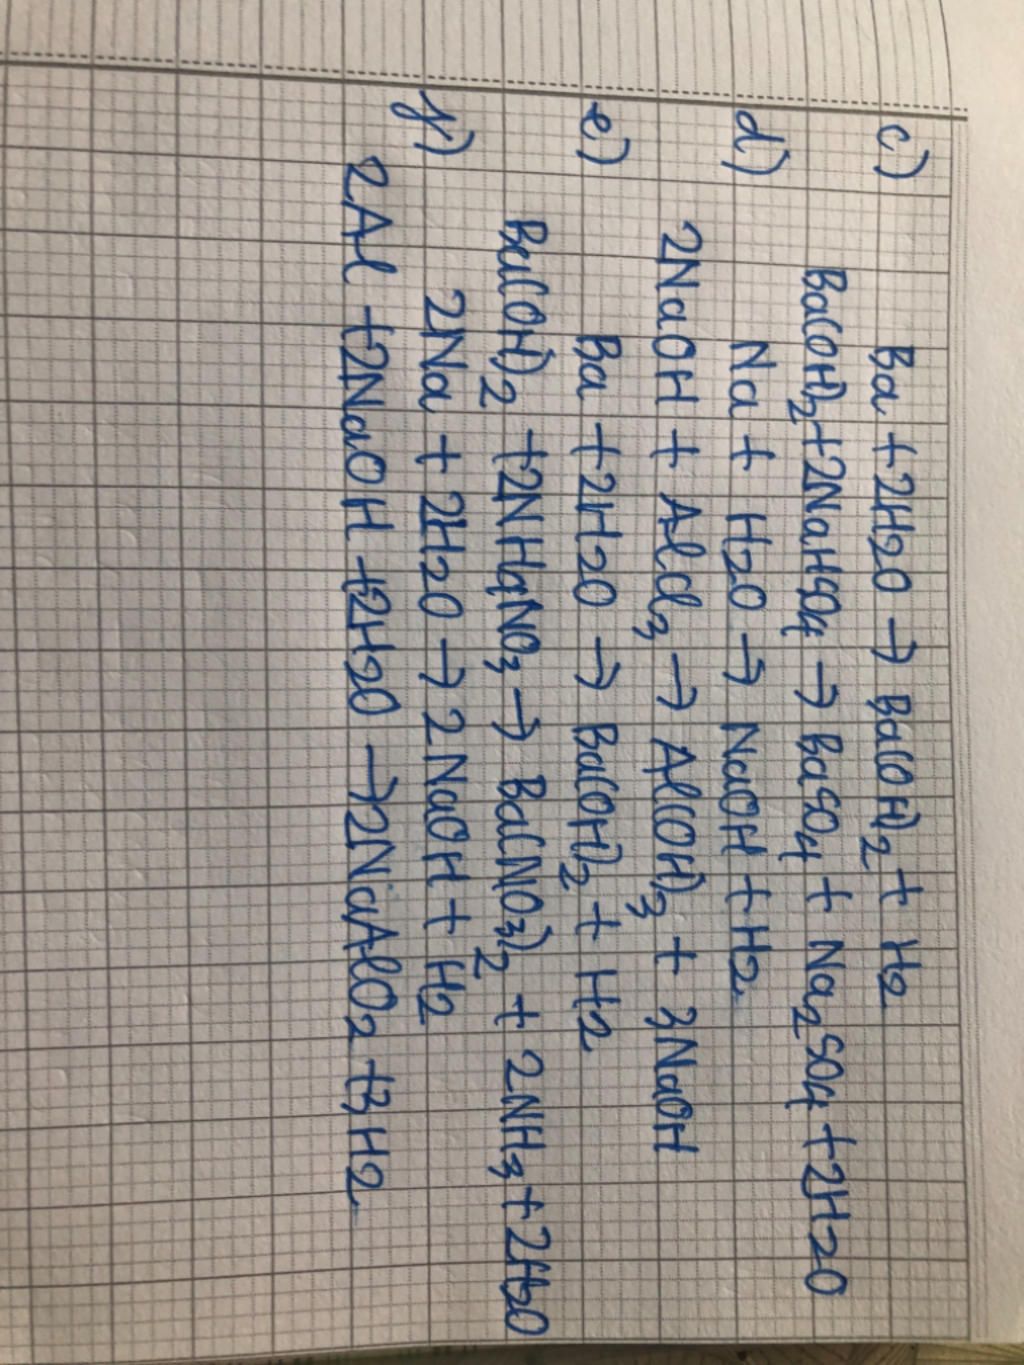 c)
Ba + 2H2O → Ba(OH)2 + H2
Ba(OH)2 + 2NaHSO4 → BaSO4 + Na2SO4 + 2H2O
d)
Na + H2O → NaOH + H2
2NaOH + AlCl3 → Al(OH)3 + 3NaOH
e)
Ba + 2H2O → Ba(OH)2 + H2
Ba(OH)2 + 2NH4NO3 → Ba(NO3)2 + 2NH3 + 2H2O
f)
2Na + 2H2O → 2NaOH + H2
2Al + 2NaOH + 2H2O → 2NaAlO2 + 3H2